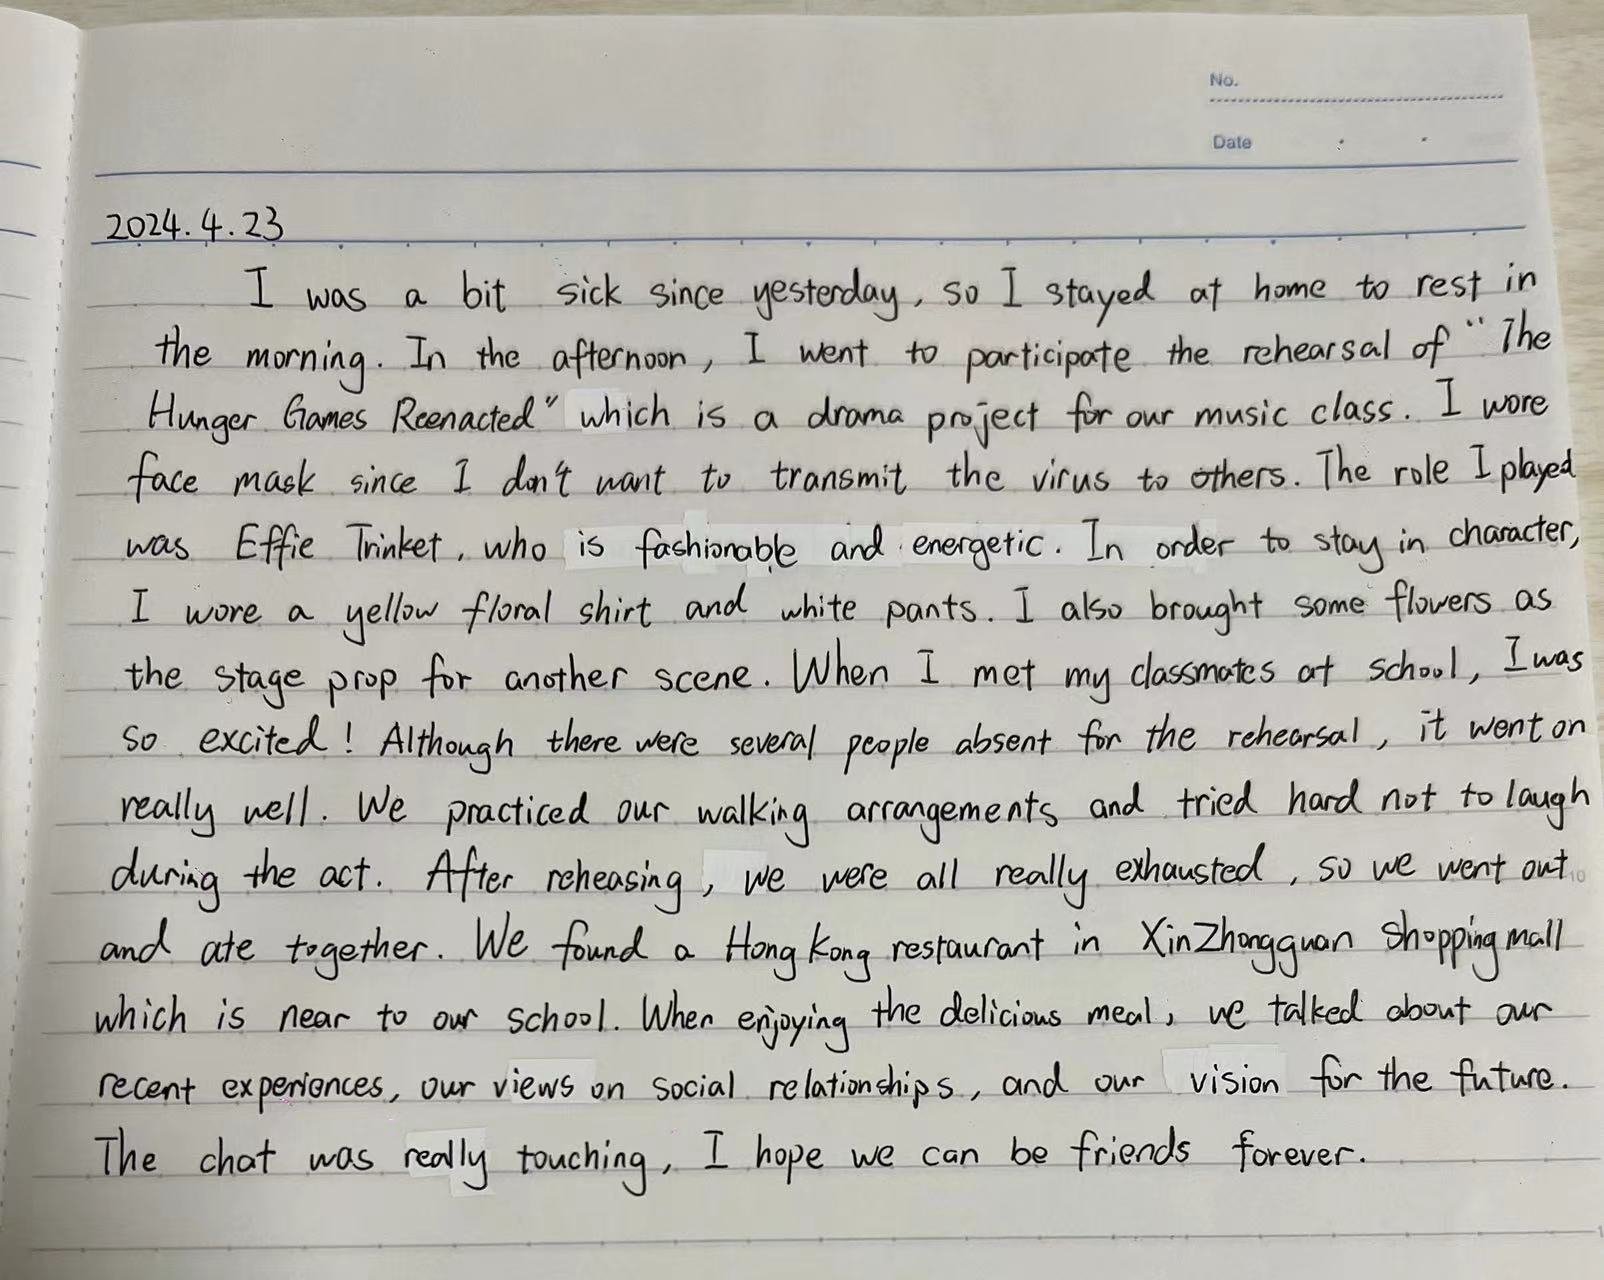 No.
Date
2024.4.23
I was a bit sick since yesterday, so I stayed at home to rest in
the morning. In the afternoon, I went to participate the rehearsal of "The
Hunger Games Reenacted" which is a drama project for our music class. I wore
face mask since I don't want to transmit the virus to others. The role I played
was Effie Trinket, who is fashionable and energetic. In order to stay in character,
I wore a yellow floral shirt and white pants. I also brought some flowers as
the stage prop for another scene. When I met my classmates at school, I was
so excited! Although there were several people absent for the rehearsal, it went on
really well. We practiced our walking arrangements and tried hard not to laugh
during the act. After reheasing, we were all really exhausted, so we went out
10
and ate together. We found a Hong Kong restaurant in XinZhongguan shopping mall
which is near to our school. When enjoying the delicious meal, we talked about our
recent experiences, our views on social relationships, and our vision for the future.
The chat was really touching, I hope we can be friends forever.